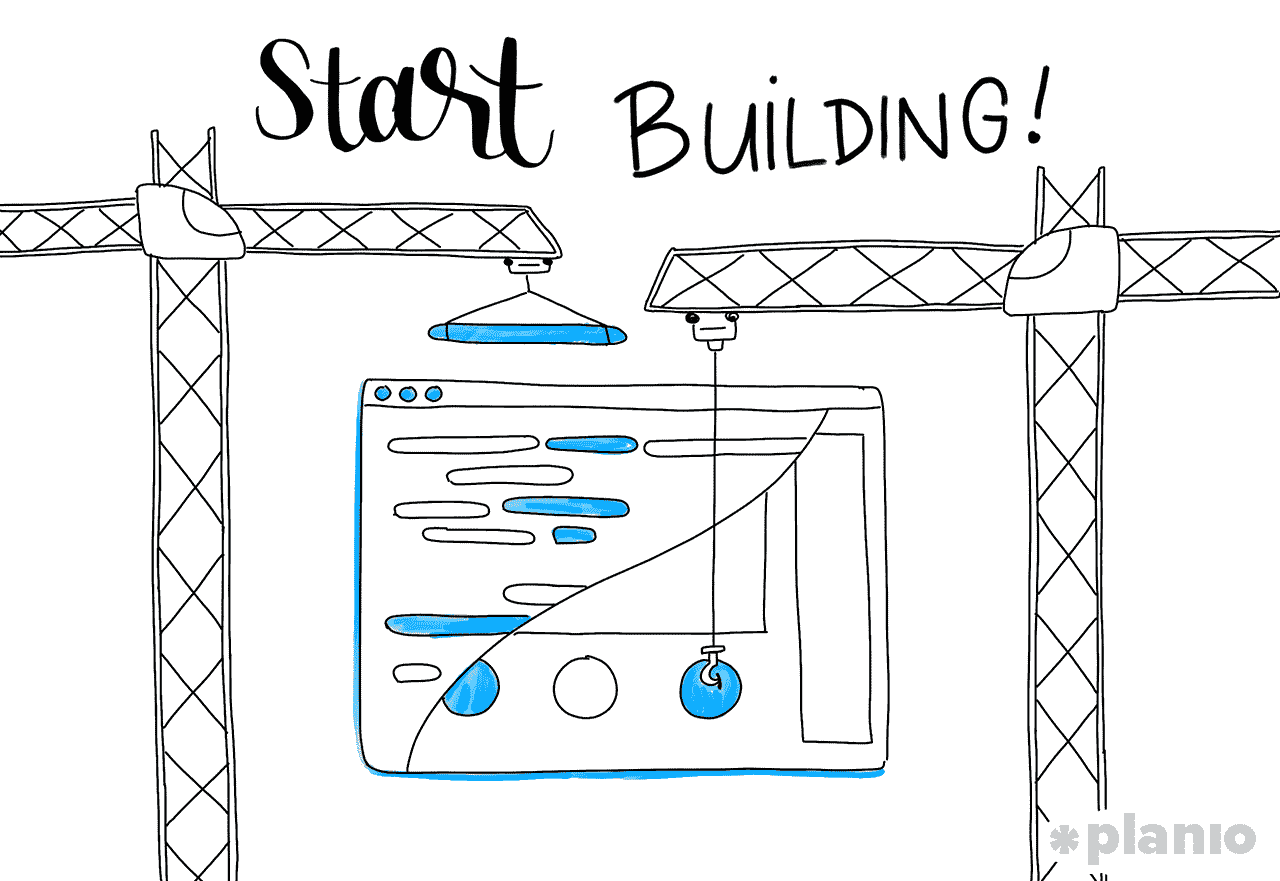 Start BUiLDING!
*planio